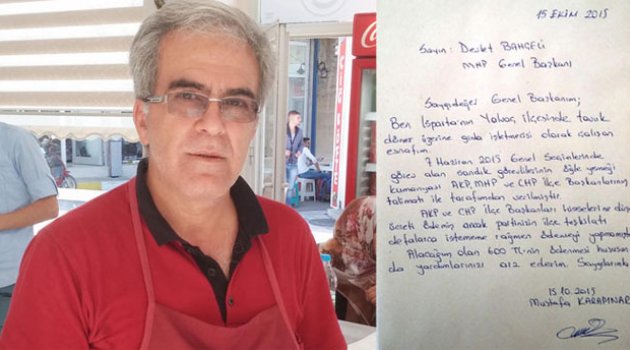 15 EKİM 2015
Sayın: Devlet BAHÇELİ
MHP Genel Başkanı
Saygıdeğer Genel Başkanım;
Ben Isparta'nın Yalvaç ilçesinde tavuk
döner üzerine gıda işletmecisi olarak çalışan
esnafım.
7 Haziran 2015 Genel Seçimlerinde
görev alan sandık görevlilerinin öğle yemeği
kumanyası AKP, MHP ve CHP İlçe Başkanlarının
talimatı ile tarafımdan verilmiştir.
AKP ve CHP İlçe Başkanları hisselerine düşen
ücreti ödemiş ancak partimizin ilçe teşkilatı
defalarca istememe rağmen ödemeyi yapmamıştır
Alacağım olan 600 TL'nin ödenmesi husus
da yardımlarınızı arz ederim. Saygılarımla
15.10.2015
Mustafa KARAPINAR